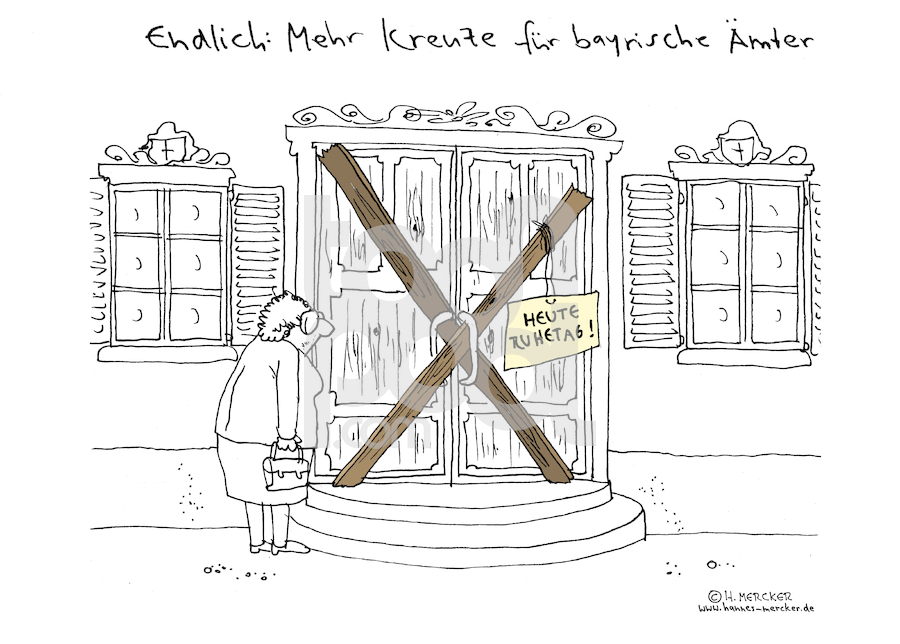 Endlich: Mehr Kreuze für bayrische Ämter
HEUTE
RUHETAG!
© H. MERCKER
www.hannes-mercker.de